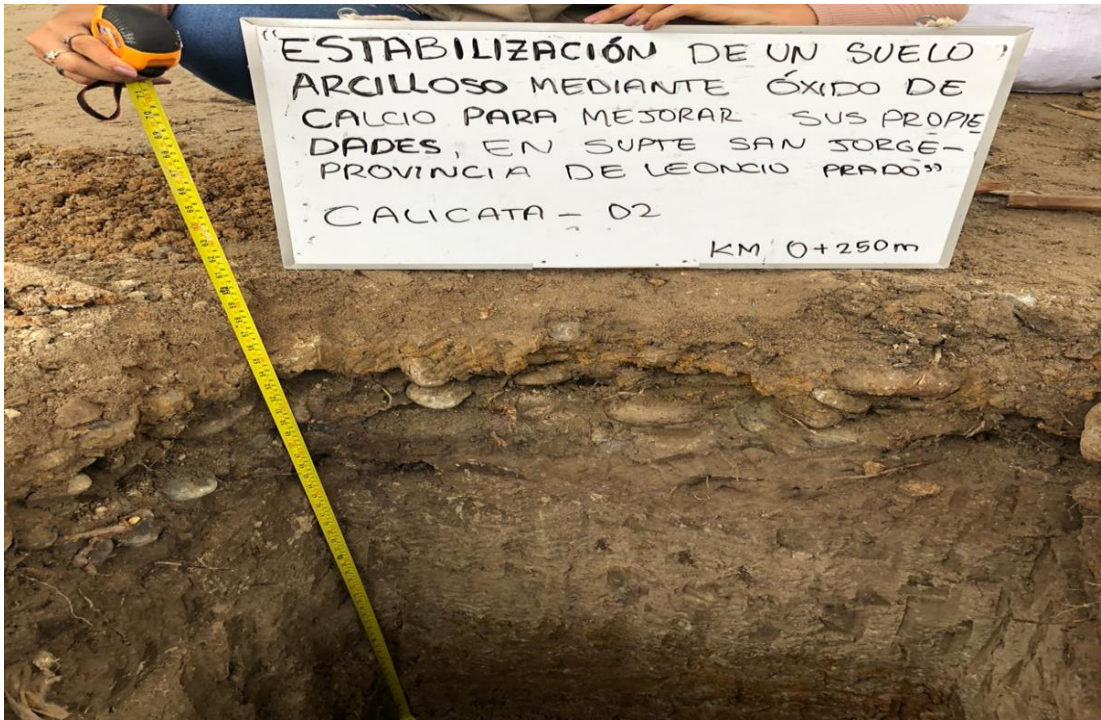 "ESTABILIZACIÓN DE UN SUELO
ARCILLOSO MEDIANTE ÓXIDO DE
CALCIO PARA MEJORAR SUS PROPIE
DADES, EN SUPTE SAN JORGE-
PROVINCIA DE LEONCIO PRADO"
CALICATA - 02
KM 0+250m